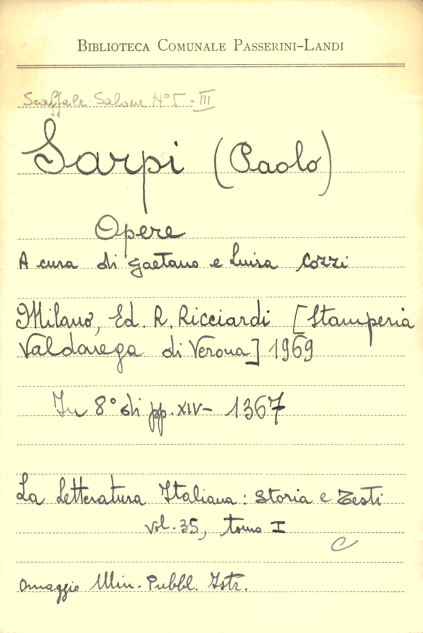 BIBLIOTECA COMUNALE PASSERINI-LANDI
Scaffale Salone N° 5 - III
Sarpi (Paolo)
Opere
A cura di Gaetano e Luisa Cozzi
Milano, Ed. R. Ricciardi [Stamperia
Valdonega di Verona] 1969
In 8° di pp. XIV- 1367
La Letteratura Italiana: Storia e Testi
vol. 35, tomo I
C
Omaggio Min. Pubbl. Istr.